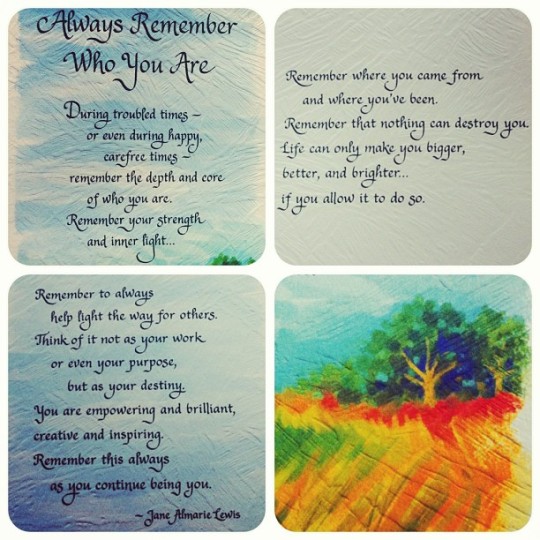 Always Remember
Who You Are
During troubled times ~
or even during happy,
carefree times ~
remember the depth and core
of who you are.
Remember your strength
and inner light...
Remember where you came from
and where you've been.
Remember that nothing can destroy you.
Life can only make you bigger,
better, and brighter...
if you allow it to do so.
Remember to always
help light the way for others.
Think of it not as your work
or even your purpose,
but as your destiny.
You are empowering and brilliant,
creative and inspiring.
Remember this always
as you continue being you.
~ Jane Almarie Lewis